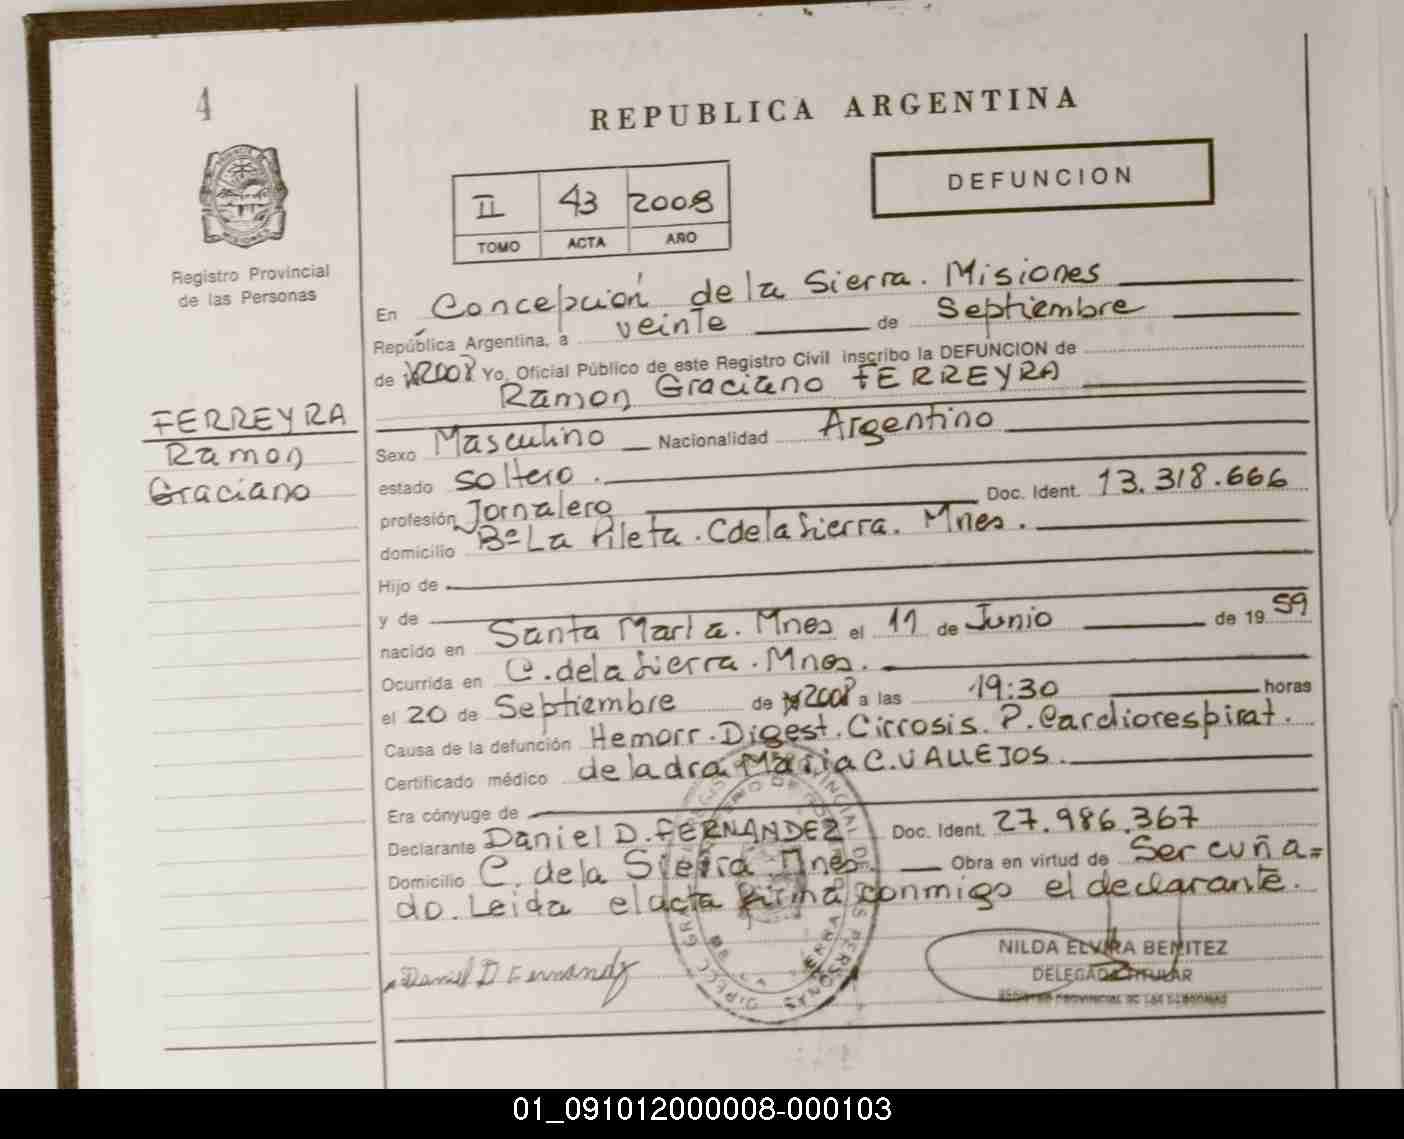 4
REPUBLICA ARGENTINA
DEFUNCION
II 43 2008
TOMO ACTA AÑO
Registro Provincial
de las Personas
En Concepción de la Sierra. Misiones
República Argentina, a veinte de Septiembre
de 2008 Yo, Oficial Público de este Registro Civil inscribo la DEFUNCION de
Ramon Graciano FERREYRA
FERREYRA
Ramon
Graciano
Sexo Masculino Nacionalidad Argentino
estado soltero.
profesión Jornalero Doc. Ident. 13.318.666
domicilio Bº La Pileta. C de la Sierra. Mnes.
Hijo de
y de
nacido en Santa Maria. Mnes el 11 de Junio de 19 59
Ocurrida en C. de la Sierra. Mnes.
el 20 de Septiembre de 2008 a las 19:30 horas
Causa de la defunción Hemorr. Digest. Cirrosis. P. Cardiorespirat.
Certificado médico de la dra Maria C. VALLEJOS.
Era cónyuge de
Declarante Daniel D. FERNANDEZ Doc. Ident. 27.986.367
Domicilio C. de la Sierra. Mnes. Obra en virtud de Ser cuña=
do. Leida el acta firma conmigo el declarante.
Daniel D Fernandz
NILDA ELVIRA BENITEZ
DELEGADA TITULAR
REGISTRO PROVINCIAL DE LAS PERSONAS
01_091012000008-000103